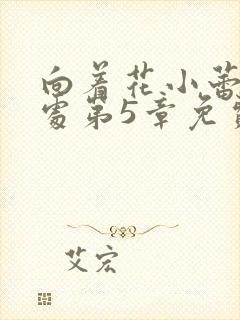 向着花小蕾
处第5章免
艾宏